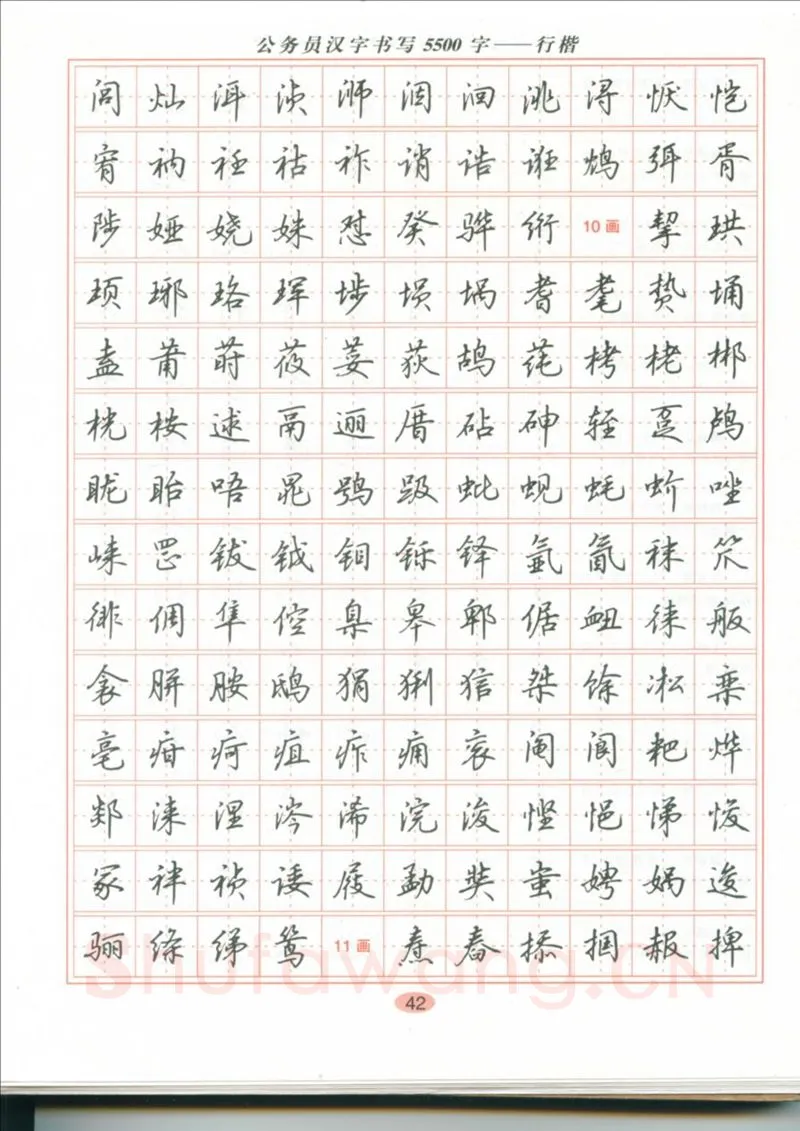 公务员汉字书写5500字——行楷
闾籼洱浈浉洇洄洮浔恹恺
宥衲衽祜祚诮诰诳鸩弭胥
陟娅娆姝怼癸骅绗10画挈珙
顼琊珞珲埗埙埚耆耄贽埇
盍莆莳莜荽荻鸪莼栲栳郴
桄桉逑鬲逦厝砧砷轾趸鸬
眬眙唔晁鸮趿蚍蚬蚝蚧唑
崃罡钹钺钼铄铎氩氤秣笊
俳倜隼倥臬皋郫倨衄徕舨
衾胼胺鸱狷猁狺桀馀凇栾
亳疳疴疽痄痈衮阃阆粑烨
郯涞涅涔浠浣浚悭悒悌悛
冢袢祯诿屐勐奘蚩娉娲逡
骊绦绨鸶11画焘舂掭掴赧捭
Shufawang.CN
42